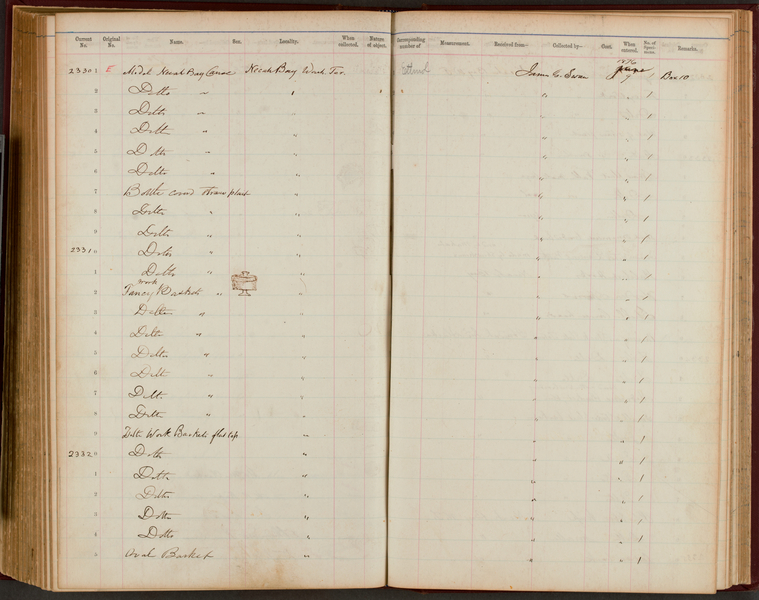 Current No. Original No. Name. Sex. Locality. When collected. Nature of object. Corresponding number of Measurement. Received from— Collected by— Cost. When entered. No. of Specimens. Remarks.
23301 E Model Neeah Bay Canoe Neeah Bay Wash. Ter. Ethnol James G. Swan 1876 June 9 1 Box 10
2 Ditto " " " " 1
3 Ditto " " " " 1
4 Ditto " " " " 1
5 Ditto " " " " 1
6 Ditto " " " " 1
7 Bottle cov'd straw plait " " " 1
8 Ditto " " " " 1
9 Ditto " " " " 1
23310 Ditto " " " " 1
1 Ditto " " " " 1
2 Fancy Work Baskets " " " " 1
3 Ditto " " " " 1
4 Ditto " " " " 1
5 Ditto " " " " 1
6 Ditto " " " " 1
7 Ditto " " " " 1
8 Ditto " " " " 1
9 Ditto Work Baskets flat top " " " 1
23320 Ditto " " " 1
1 Ditto " " " 1
2 Ditto " " " 1
3 Ditto " " " 1
4 Ditto " " " 1
5 Oval Basket " " " 1